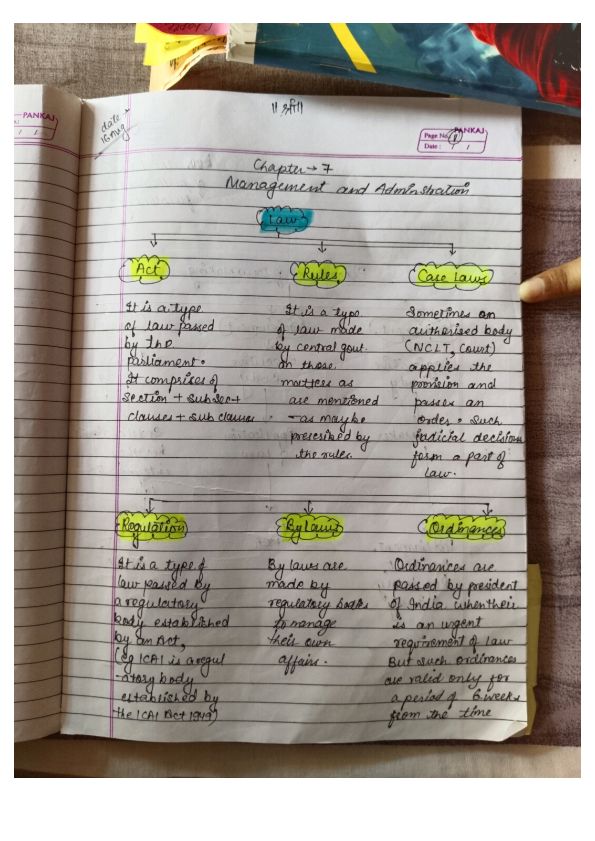 ॥ श्री॥
date →
16 Aug
PANKAJ
PANKAJ
Page No. 8
Date : / /
Chapter → 7
Management and Adminstration
Law
Act
Rules
Case Laws
It is a type
of law passed
by the
parliament.
It comprises of
section + subsec+
clauses + sub clauses
It is a type
of law made
by central govt.
on those
matters as
are mentioned
- as maybe
prescribed by
the rules.
Sometimes an
authorised body
(NCLT, Court)
applies the
provision and
passes an
order. Such
judicial decisions
form a part of
law.
Regulation
By Laws
Ordinances
It is a type of
law passed by
a regulatory
body established
by an Act,
(eg ICAI is a regul
-atory body
established by
the ICAI Act 1949)
By laws are
made by
regulatory bodies
to manage
their own
affairs.
Ordinances are
passed by president
of India when their
is an urgent
requirement of law
But such ordinances
are valid only for
a period of 6 weeks
from the time